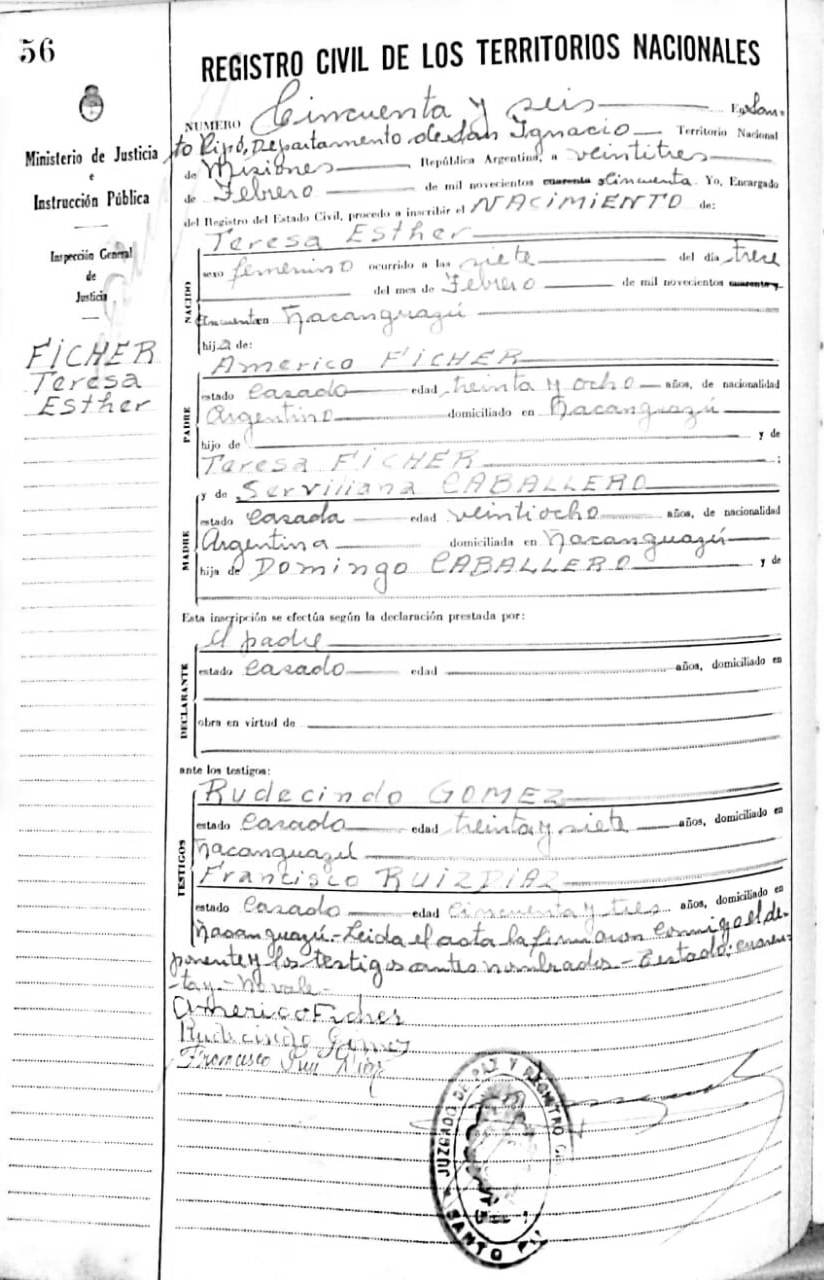 56
REGISTRO CIVIL DE LOS TERRITORIOS NACIONALES
Ministerio de Justicia
e
Instrucción Pública
Inspección General
de
Justicia
FICHER
Teresa
Esther
NUMERO Cincuenta y seis En San-
to Pipó, Departamento de San Ignacio Territorio Nacional
de Misiones República Argentina, a veintitres
de Febrero de mil novecientos cuarenta cincuenta. Yo, Encargado
del Registro del Estado Civil, procedo a inscribir el NACIMIENTO de:
NACIDO
Teresa Esther
sexo femenino ocurrido a las siete del día trece
del mes de Febrero de mil novecientos cuarenta y
cincuenta en Ñacanguazú
hija de:
PADRE
Americo FICHER
estado Casado edad treinta y ocho años, de nacionalidad
Argentino domiciliado en Ñacanguazú
hijo de y de
Teresa FICHER ;
MADRE
y de Serviliana CABALLERO
estado Casada edad veintiocho años, de nacionalidad
Argentina domiciliada en Ñacanguazú
hija de Domingo CABALLERO y de
Esta inscripción se efectúa según la declaración prestada por:
DECLARANTE
el padre
estado Casado edad años, domiciliado en
obra en virtud de
ante los testigos:
TESTIGOS
Rudecindo GOMEZ
estado Casado edad treinta y siete años, domiciliado en
Ñacanguazú
Francisco RUIZDIAZ
estado Casado edad cincuenta y tres años, domiciliado en
Ñacanguazú.- Leida el acta la firmaron conmigo el de-
ponente y los testigos antes nombrados.- Testado: cuaren-
-ta y- No vale-
Americo Ficher
Rudecindo Gomez
Francisco Rui Diaz
JUZGADO DE PAZ Y REGISTRO
SANTO